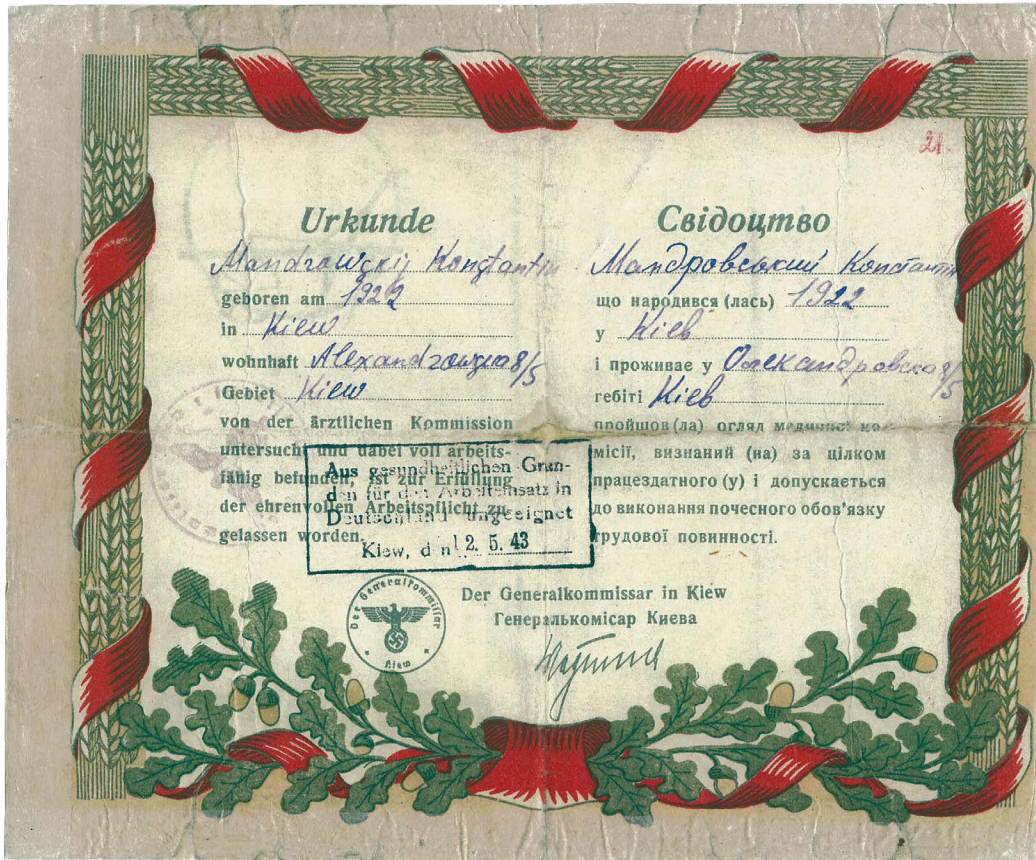 21.
Urkunde
Mandrowskij Konstantin
geboren am 1922
in Kiew
wohnhaft Alexandrowska 8/5
Gebiet Kiew
von der ärztlichen Kommission
untersucht und dabei voll arbeits-
fähig befunden, ist zur Erfüllung
der ehrenvollen Arbeitspflicht zu-
gelassen worden.
Aus gesundheitlichen Grün-
den für den Arbeitseinsatz in
Deutschland ungeeignet
Kiew, d n 12. 5. 43
Свідоцтво
Мандровський Константин
що народився (лась) 1922
у Кіев
і проживае у Олександровська 8/5
гебіті Кіев
пройшов (ла) огляд медичної ко-
місії, визнаний (на) за цілком
працездатного (у) і допускається
до виконання почесного обов'язку
трудової повинності.
Der Generalkommissar in Kiew
Генералькомісар Києва
Der Generalkommissar
Kiew